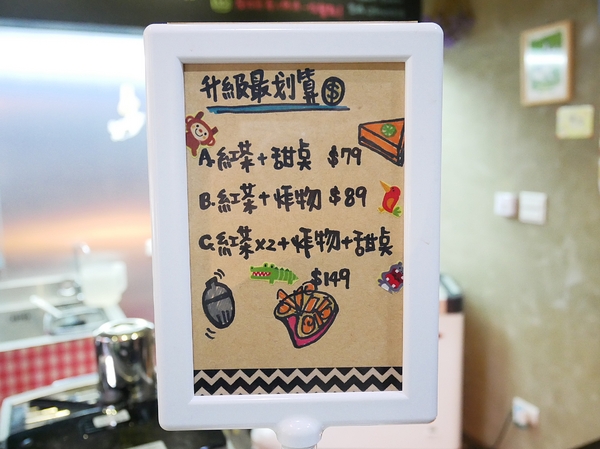 升級最划算$
A.紅茶+甜桌 $79
B.紅茶+炸物 $89
C.紅茶x2+炸物+甜桌
$149